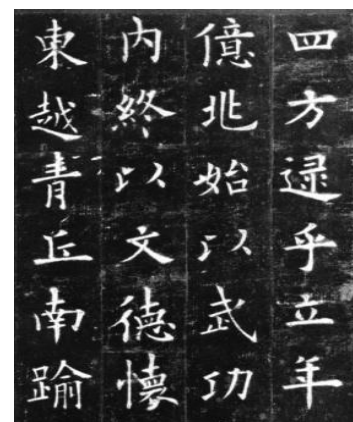 四方逯乎立年
億兆始以武功
內終以文德懷
東越青丘南踰